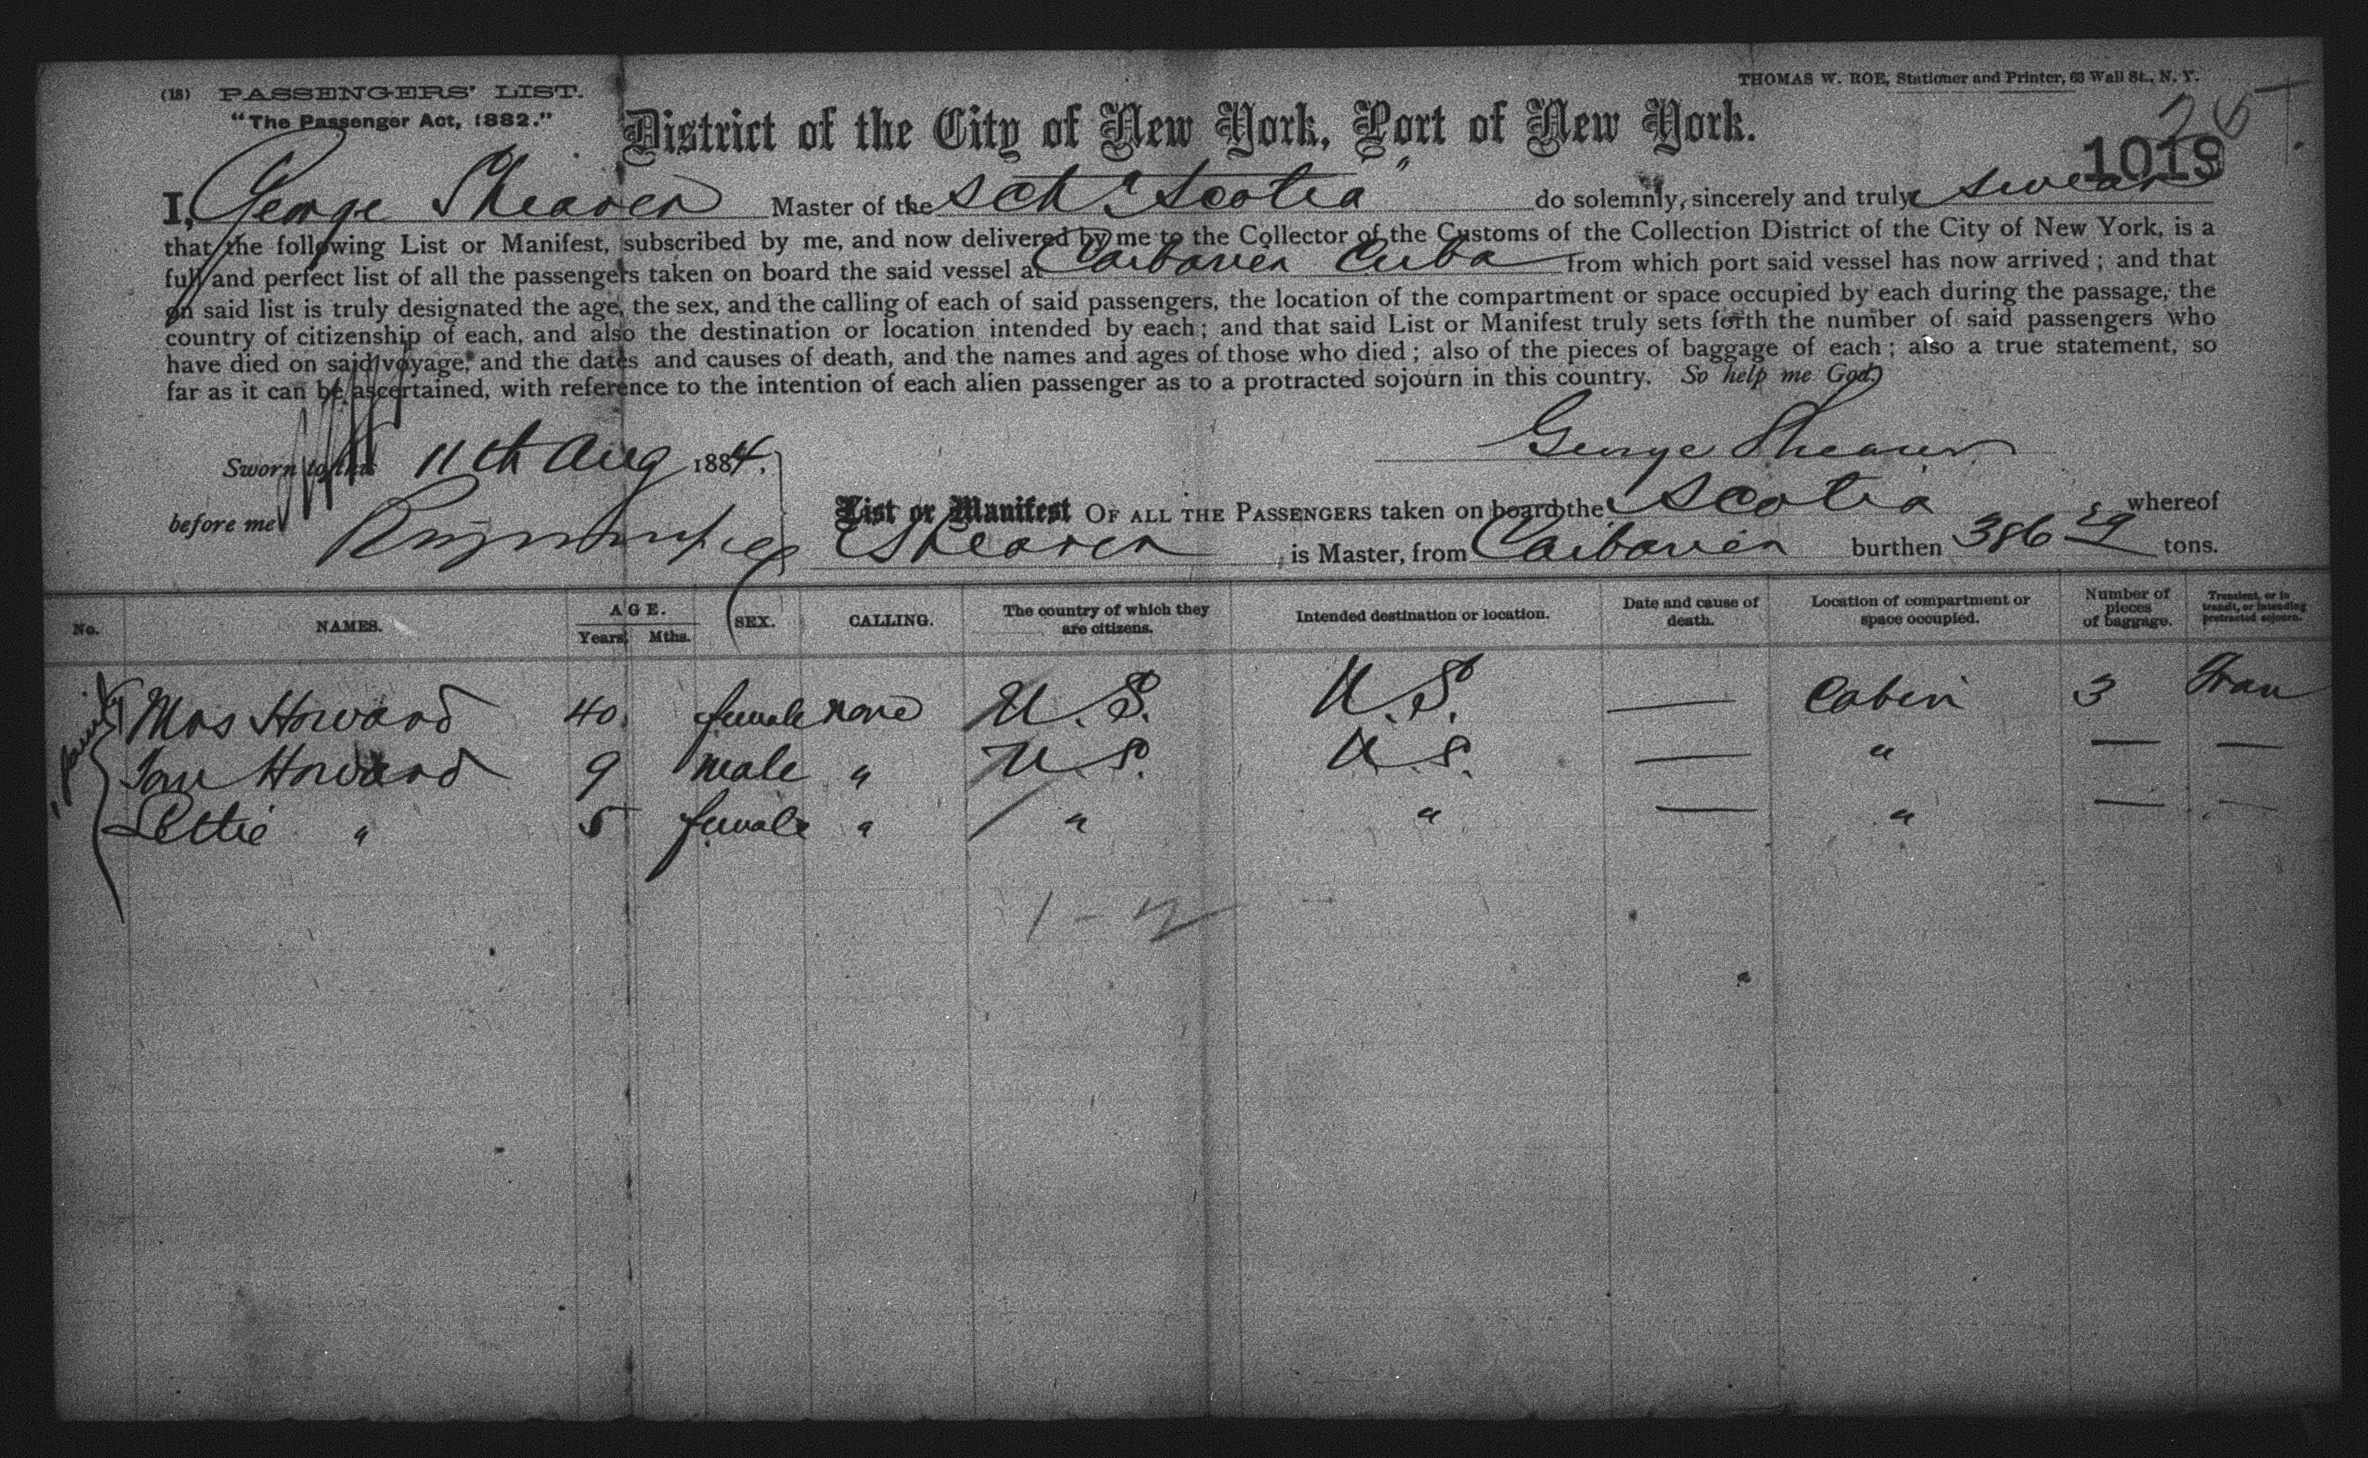 (18) PASSENGERS' LIST.
THOMAS W. ROE, Stationer and Printer, 63 Wall St., N. Y.
"The Passenger Act, 1882."
District of the City of New York, Port of New York.
1019
I, George Shearer Master of the Sch "Scotia" do solemnly, sincerely and truly swear
that the following List or Manifest, subscribed by me, and now delivered by me to the Collector of the Customs of the Collection District of the City of New York, is a
full and perfect list of all the passengers taken on board the said vessel at Caibarien Cuba from which port said vessel has now arrived; and that
on said list is truly designated the age, the sex, and the calling of each of said passengers, the location of the compartment or space occupied by each during the passage, the
country of citizenship of each, and also the destination or location intended by each; and that said List or Manifest truly sets forth the number of said passengers who
have died on said voyage, and the dates and causes of death, and the names and ages of those who died; also of the pieces of baggage of each; also a true statement, so
far as it can be ascertained, with reference to the intention of each alien passenger as to a protracted sojourn in this country. So help me God.
George Shearer
Sworn to this 11th Aug 1884.
before me
List or Manifest OF ALL THE PASSENGERS taken on board the Scotia whereof
Shearer is Master, from Caibarien burthen 386 29 tons.
No. NAMES. AGE. Years. Mths. SEX. CALLING. The country of which they are citizens. Intended destination or location. Date and cause of death. Location of compartment or space occupied. Number of pieces of baggage. Transient, or in transit, or intending protracted sojourn.
Mrs Howard 40 female none U.S. U.S. — Cabin 3 Tran
Howard 9 male " U.S. U.S. — " — —
Lettie " 5 female " " " — " — —
1-2